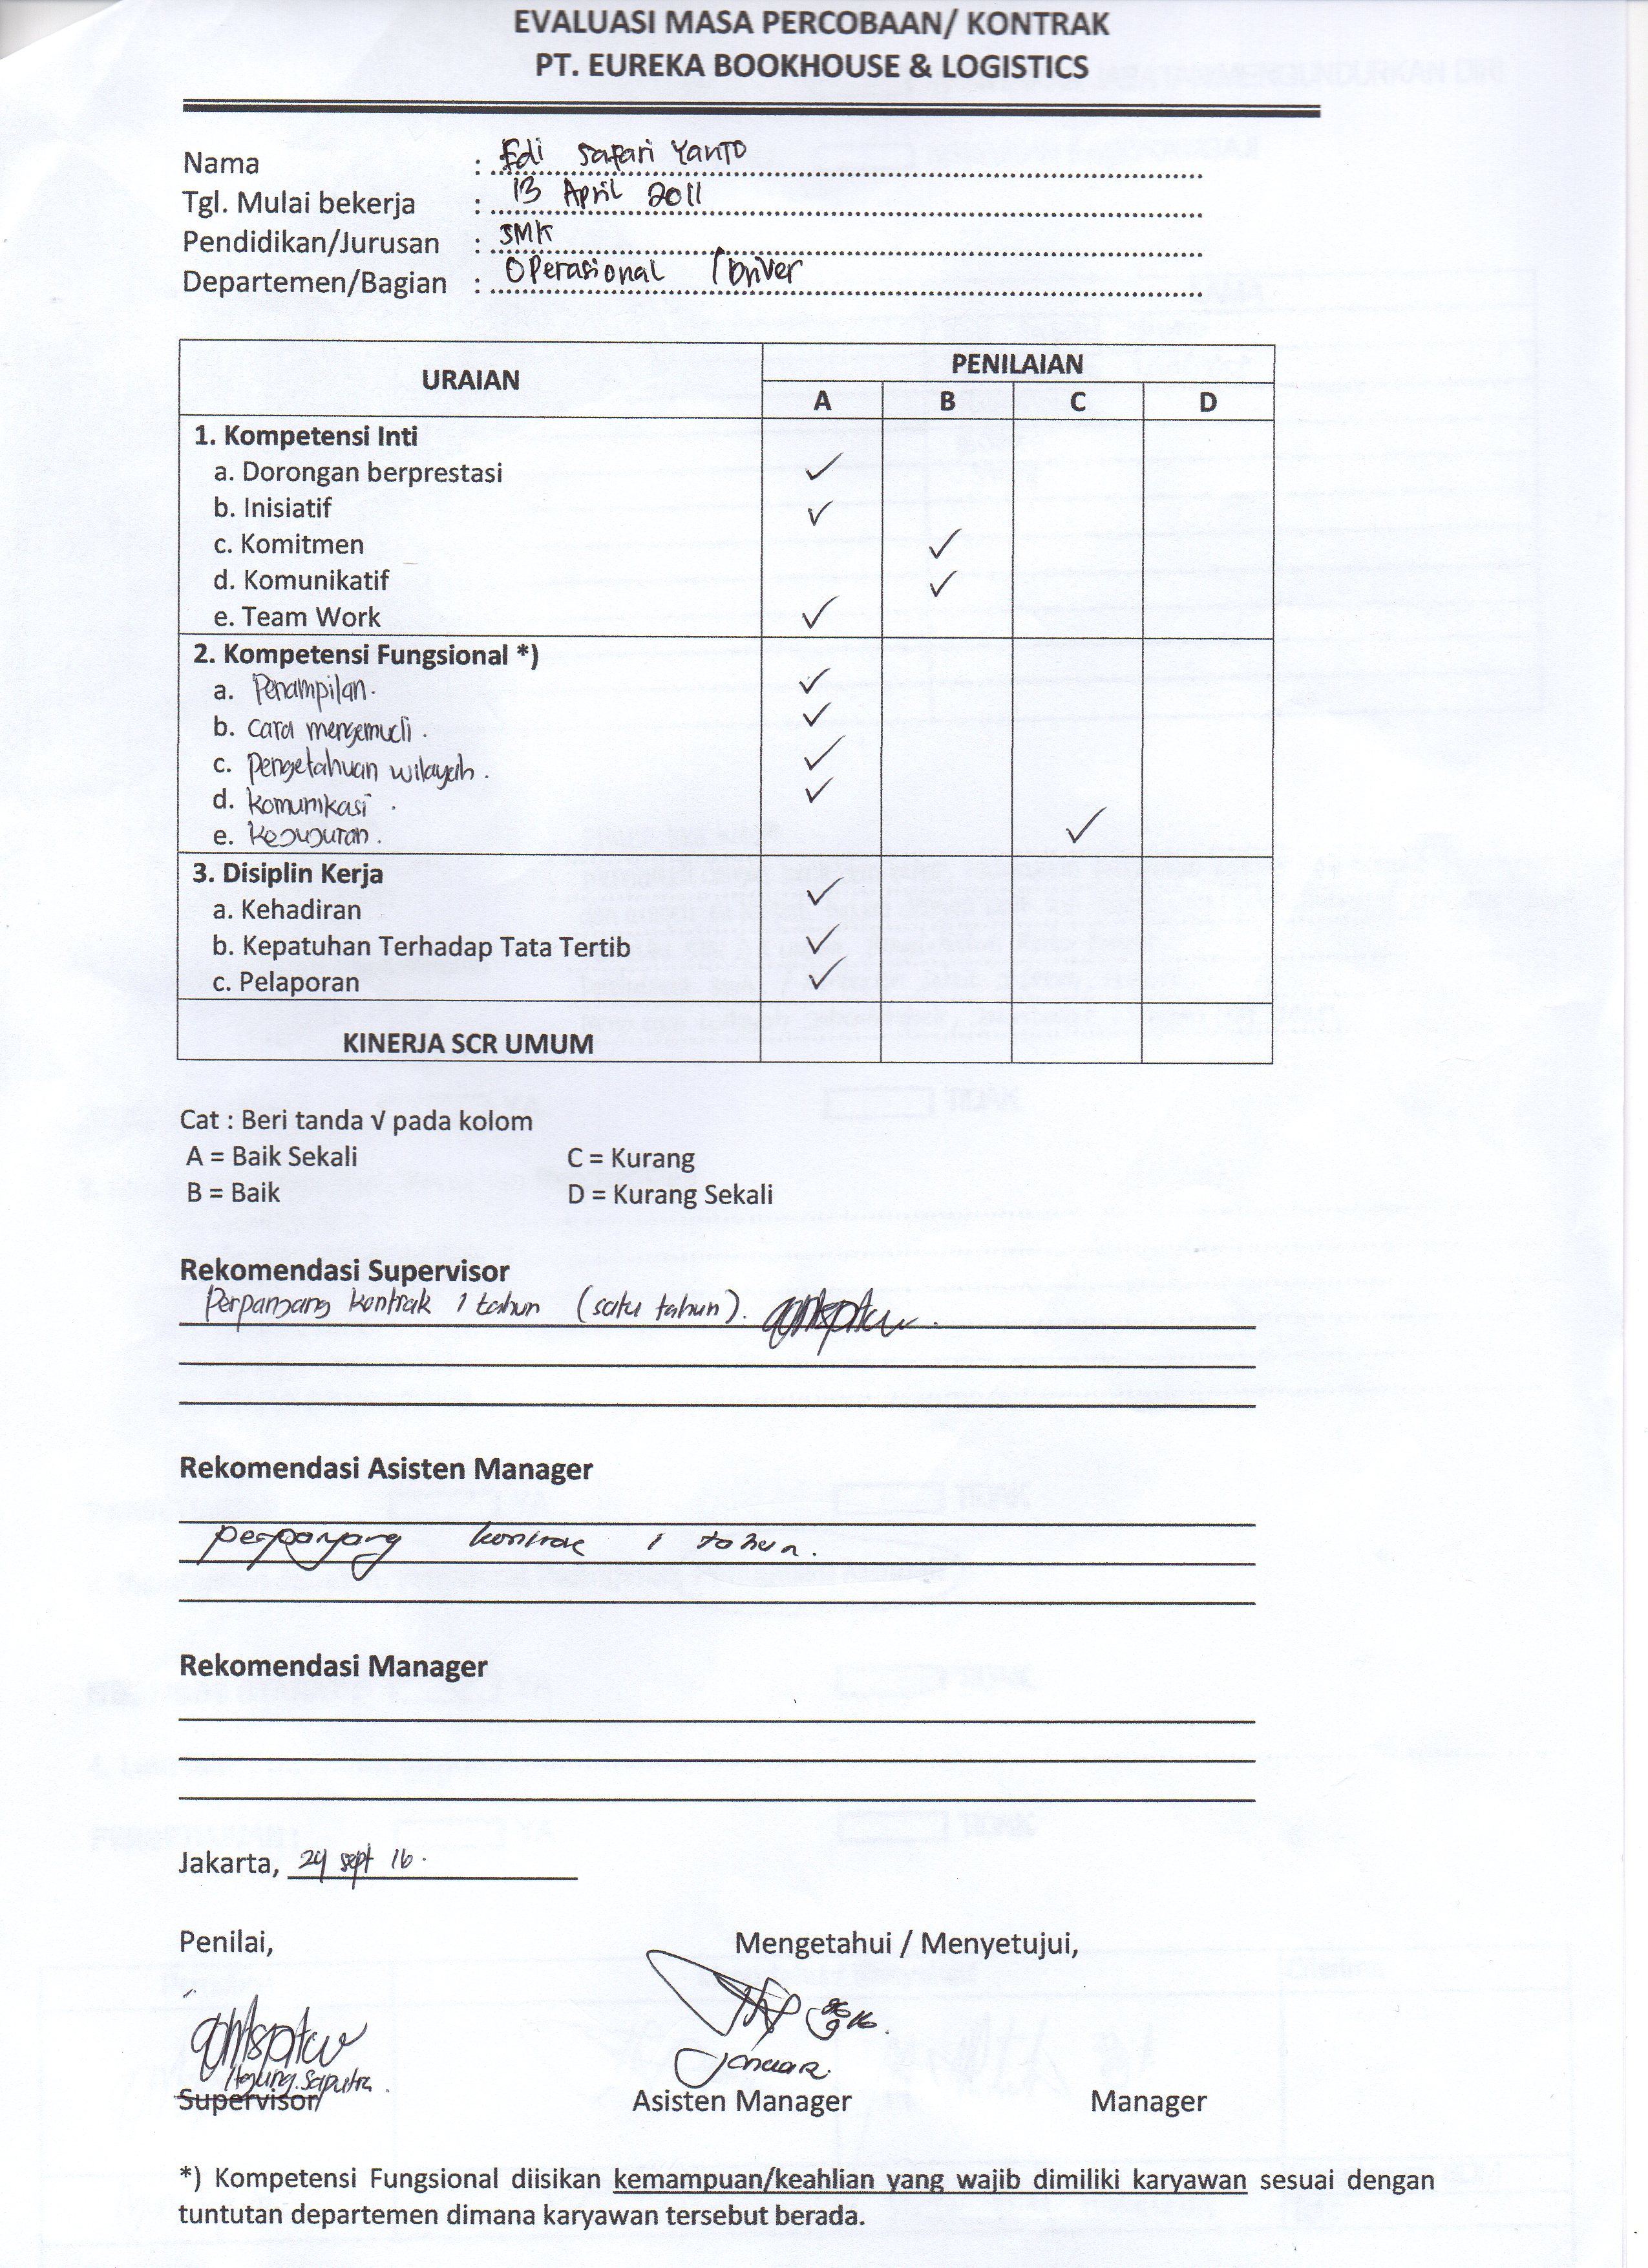 EVALUASI MASA PERCOBAAN/ KONTRAK
PT. EUREKA BOOKHOUSE & LOGISTICS
Nama : Edi Safari Yanto
Tgl. Mulai bekerja : 13 April 2011
Pendidikan/Jurusan : SMK
Departemen/Bagian : Operasional / Driver
URAIAN PENILAIAN
A B C D
1. Kompetensi Inti
a. Dorongan berprestasi ✓
b. Inisiatif ✓
c. Komitmen ✓
d. Komunikatif ✓
e. Team Work ✓
2. Kompetensi Fungsional *)
a. Penampilan. ✓
b. cara mengemudi. ✓
c. pengetahuan wilayah. ✓
d. komunikasi. ✓
e. Kejujuran. ✓
3. Disiplin Kerja
a. Kehadiran ✓
b. Kepatuhan Terhadap Tata Tertib ✓
c. Pelaporan ✓
KINERJA SCR UMUM
Cat : Beri tanda √ pada kolom
A = Baik Sekali C = Kurang
B = Baik D = Kurang Sekali
Rekomendasi Supervisor
Perpanjang kontrak 1 tahun (satu tahun).
Rekomendasi Asisten Manager
perpanjang kontrak 1 tahun.
Rekomendasi Manager
Jakarta, 24 sept 16.
Penilai, Mengetahui / Menyetujui,
Saputra
Supervisor/ Asisten Manager Manager
*) Kompetensi Fungsional diisikan kemampuan/keahlian yang wajib dimiliki karyawan sesuai dengan
tuntutan departemen dimana karyawan tersebut berada.